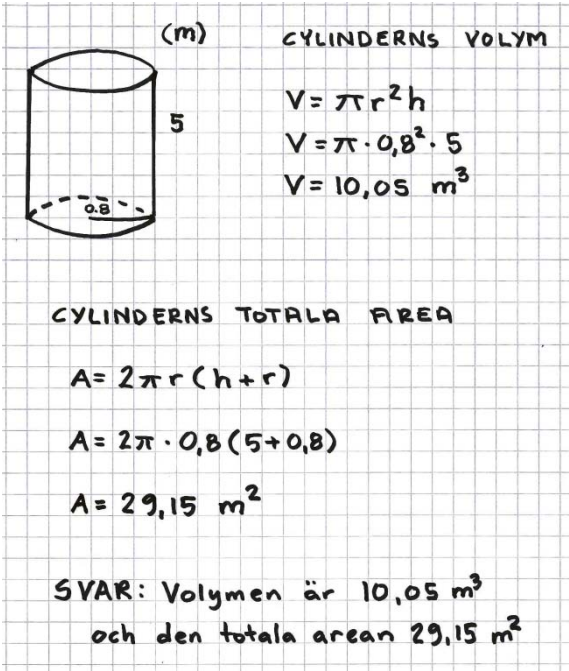 (m)
5
0.8
CYLINDERNS VOLYM
V = πr²h
V = π · 0,8² · 5
V = 10,05 m³
CYLINDERNS TOTALA AREA
A = 2πr(h+r)
A = 2π · 0,8(5+0,8)
A = 29,15 m²
SVAR: Volymen är 10,05 m³
och den totala arean 29,15 m²